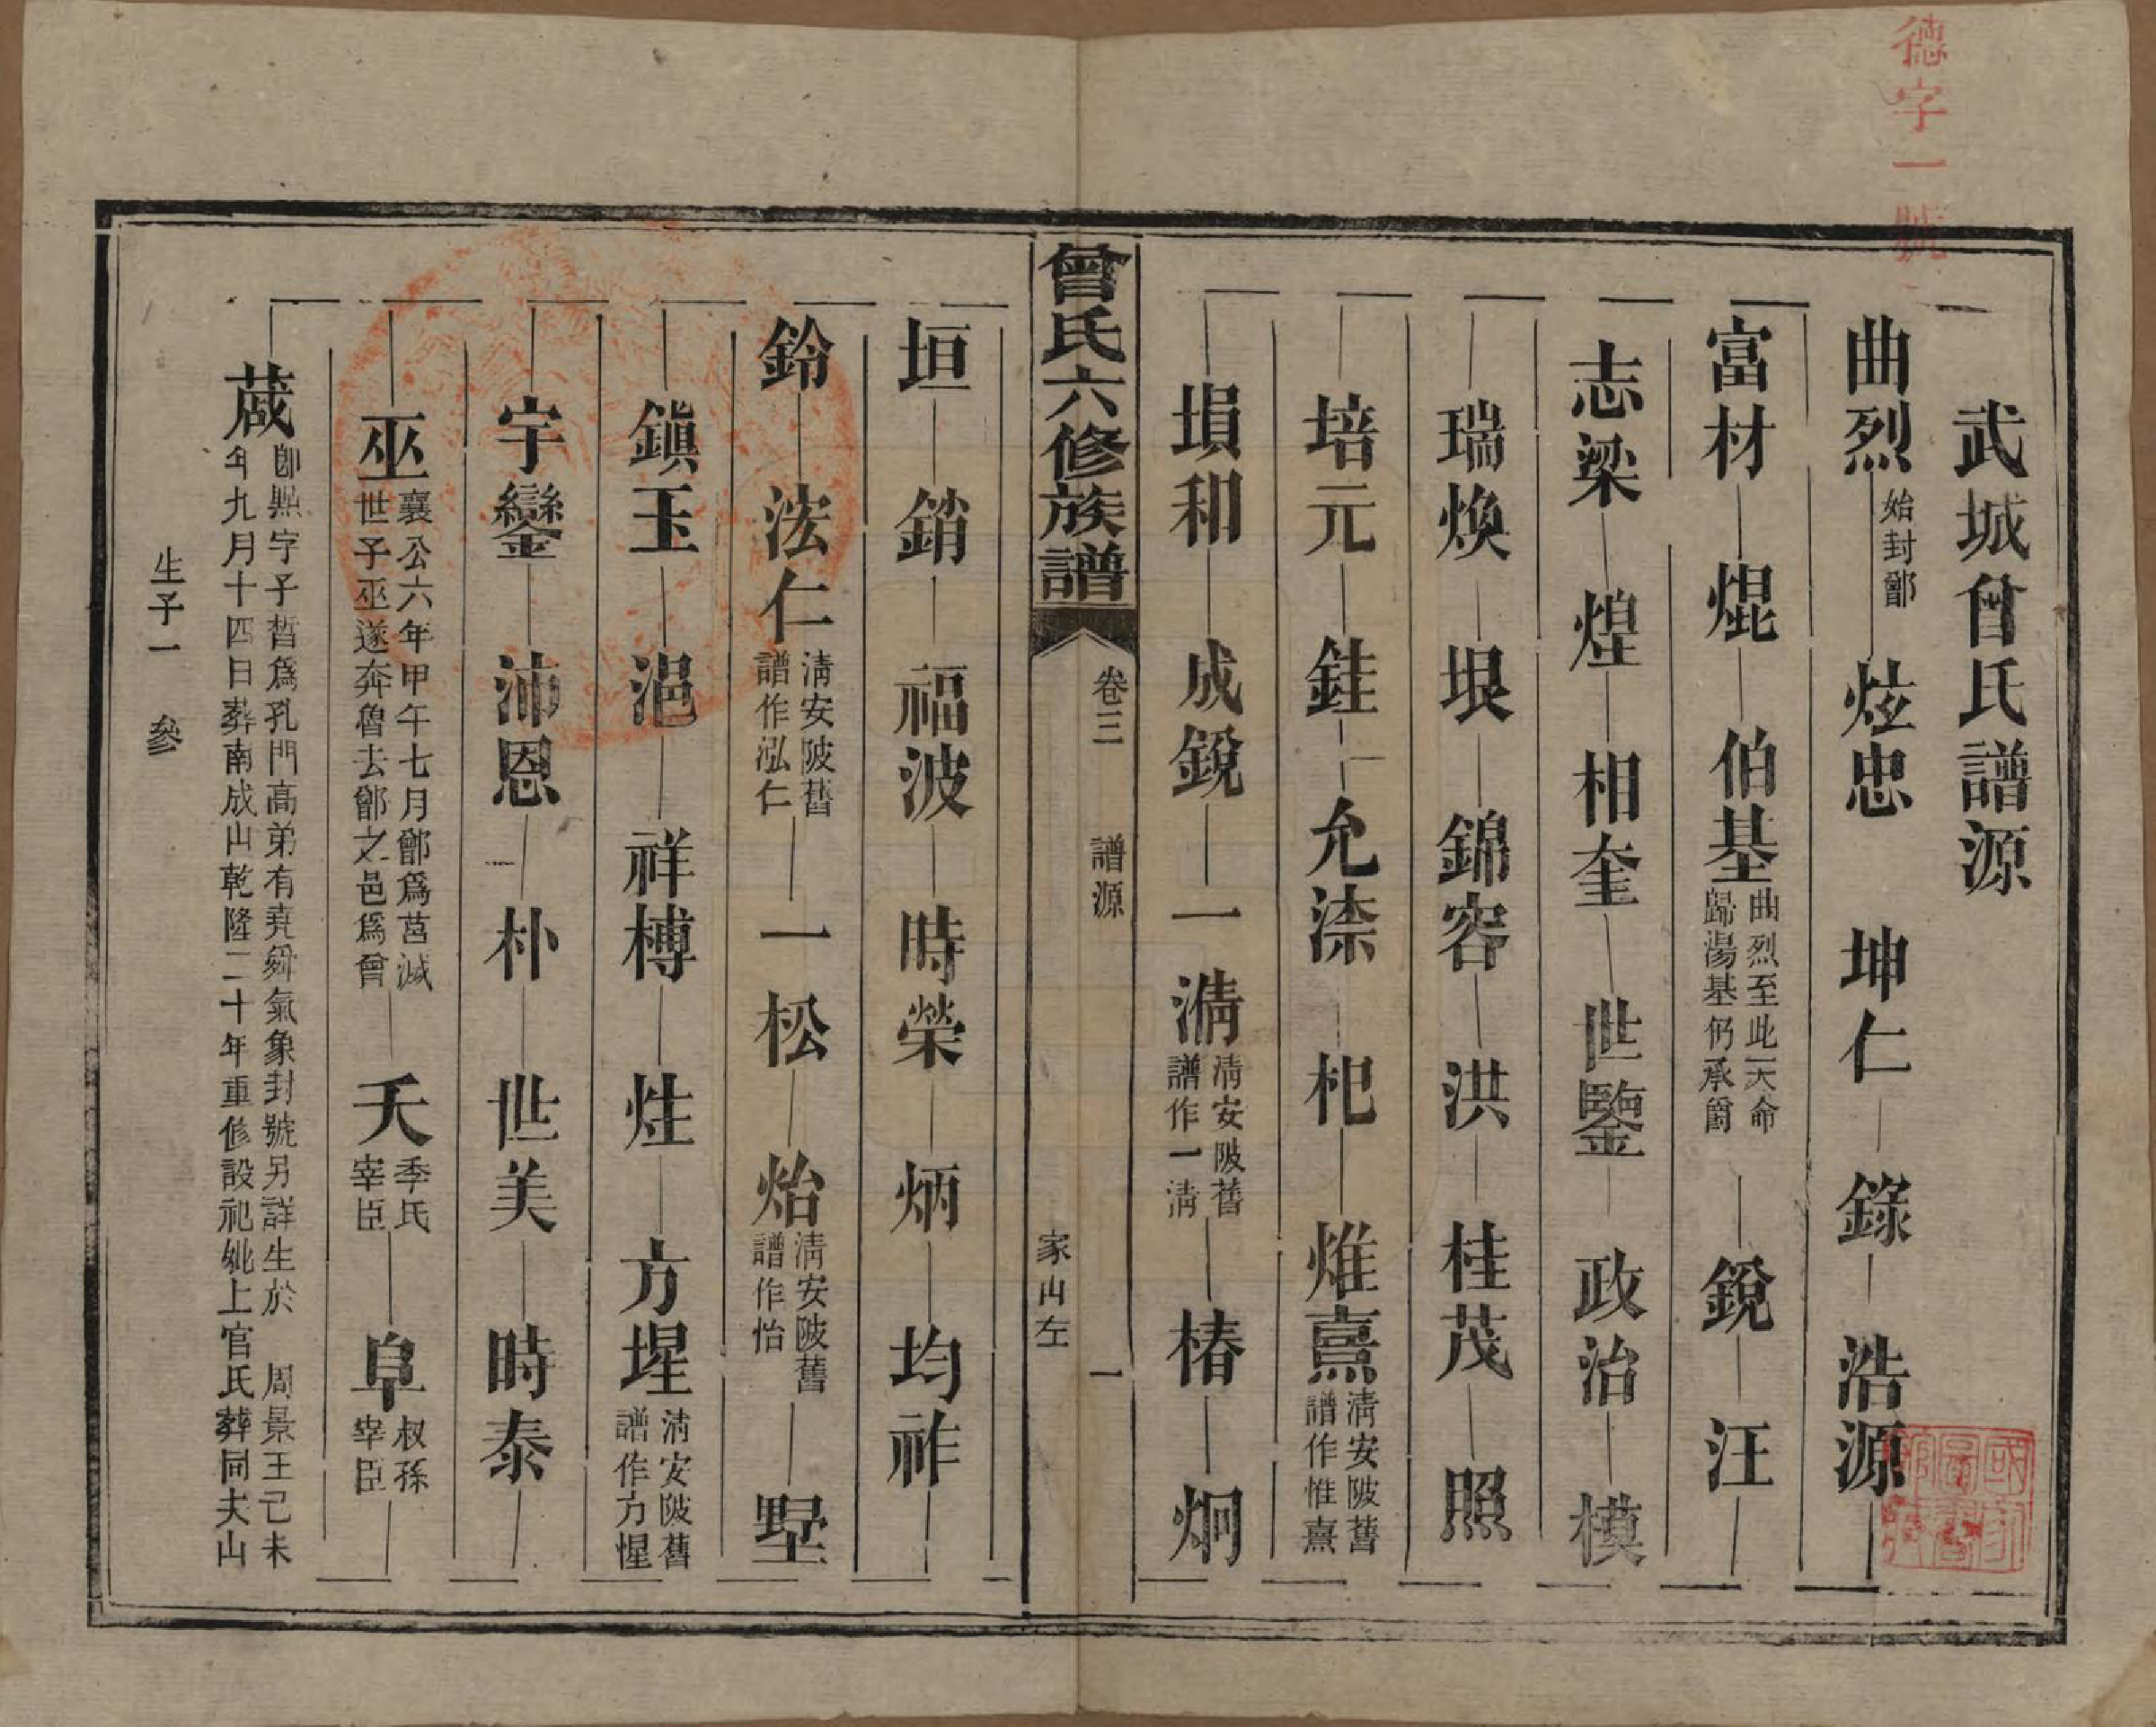 德字一號
武城曾氏譜源
曲烈 始封鄫 炫忠 坤仁 錄 浩源
富材 焜 伯基 曲烈至此天命歸湯基仍承爵 銳 汪
志梁 煌 相奎 世鑒 政治 模
瑞煥 垠 錦容 洪 桂茂 照
培元 銈 允溙 杞 熣熹 淸安陂舊譜作惟熹
塤和 成銳 一淸 淸安陂舊譜作一淸 椿 炯
曾氏六修族譜 卷三 譜源 一 家山左
垣 銷 福波 時榮 炳 均祚
鈴 浤仁 淸安陂舊譜作泓仁 一松 炲 淸安陂舊譜作怡 墅
鎭玉 浥 祥榑 炷 方堲 淸安陂舊譜作方惺
宇鑾 沛恩 朴 世美 時泰
巫 襄公六年甲午七月鄫爲莒滅世子巫遂奔魯去鄫之邑爲曾 夭 季氏宰臣 阜 叔孫宰臣
蒧 卽點字子晳爲孔門高弟有堯舜氣象封號另詳生於 周景王己未年九月十四日葬南成山乾隆二十年重修設祀妣上官氏葬同夫山
生子一 參